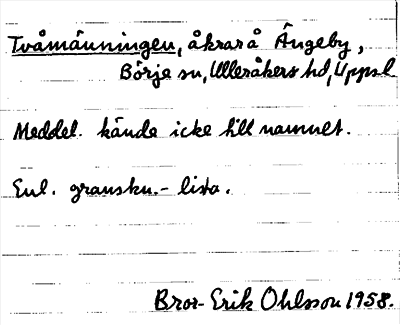 Tvåmänningen, åkrar å Ängeby,
Börje sn, Ulleråkers hd, Uppsl
Meddel. kände icke till namnet.
Enl. granskn.- lista.
Bror-Erik Ohlsson 1958.